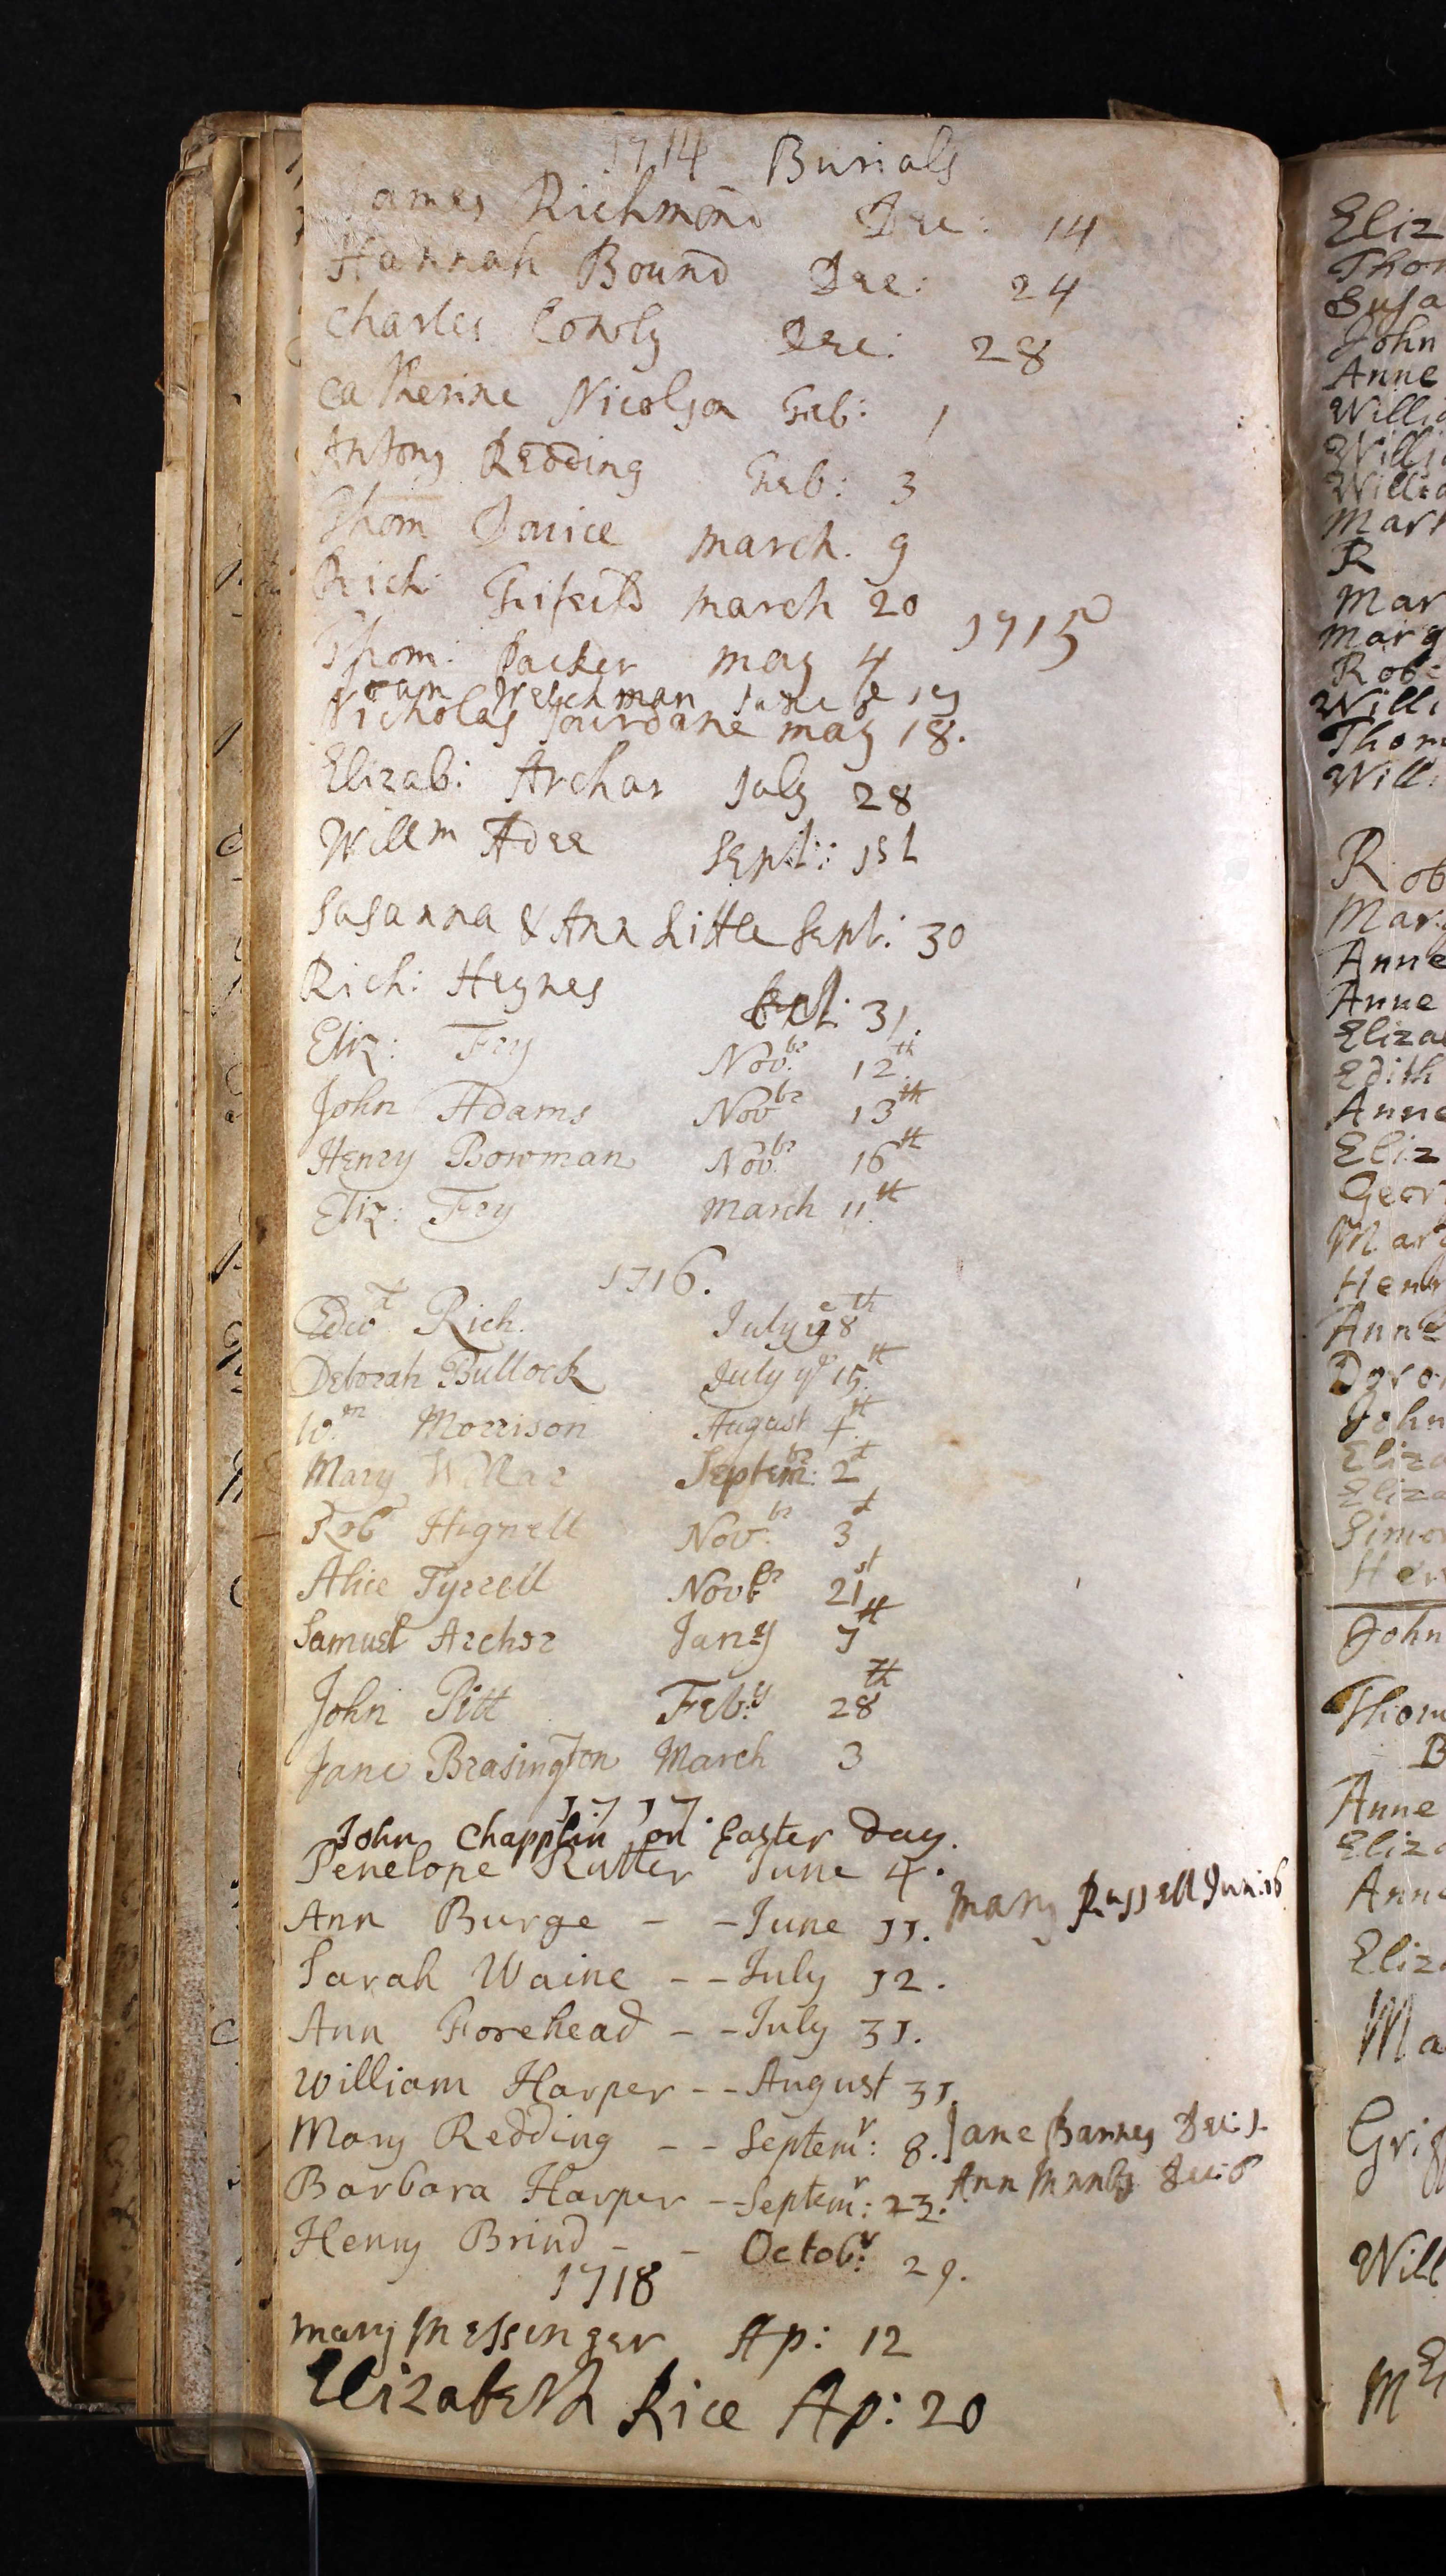 1714 Burials
James Richmond Dec: 14
Hannah Bound Dec: 24
Charles Cowly Dec: 28
Catherine Nicolson Feb: 1
Antony Redding Feb: 3
Thom march. 9
Rich: march 20
1715
Thom: Packer may 4
Welchman June 19
Nicholas Jourdane may 18.
Elizab: Archar July 28
Willm Adee Sept: 1st
Susanna & Ann Little Sept: 30
Rich: Heynes 31.
Eliz: Fry Nov:br 12th
John Adams Novbr 13th
Henry Bowman Nov:br 16th
Eliz: Fry March 11th
1716.
Edwd Rich. July ye 8th
Deborah Bullock July ye 15th
Wm Morrison August
Mary Willar Septem:br 2d
Rob Hignell Nov:br 3d
Alice Tyrrell Novbr 21st
Samuel Archer Jany 7th
John Pitt Feb:y 28th
Jane Brasington March 3
1717.
John Chapplin on Easter Day.
Penelope Rutter June 4.
Ann Burge - - June 11. Mary Russell Jun: 16
Sarah Waine - - July 12.
Ann Forehead - - July 31.
William Harper - - August 31.
Mary Redding - - Septemr: 8. Jane Barnes Dec: 1
Barbara Harper - - Septemr: 23. Ann Dec: 6
Henry Brind - - Octobr: 29.
1718
Mary Messenger Ap: 12
Elizabeth Rice Ap: 20
Eliz
Thom
Susa
John
Anne
Willia
Willia
Willia
Mart
R
Mar
Marg
Robe
Willi
Thom
Will
Rob
Mary
Anne
Anne
Elizab
Edith
Anne
Eliz
Geor
Mart
Henr
Anne
Doro
John
Eliza
Eliza
Simo
Hen
John
Thom
B
Anne
Eliz
Ann
Eliz
Ma
Grif
Will